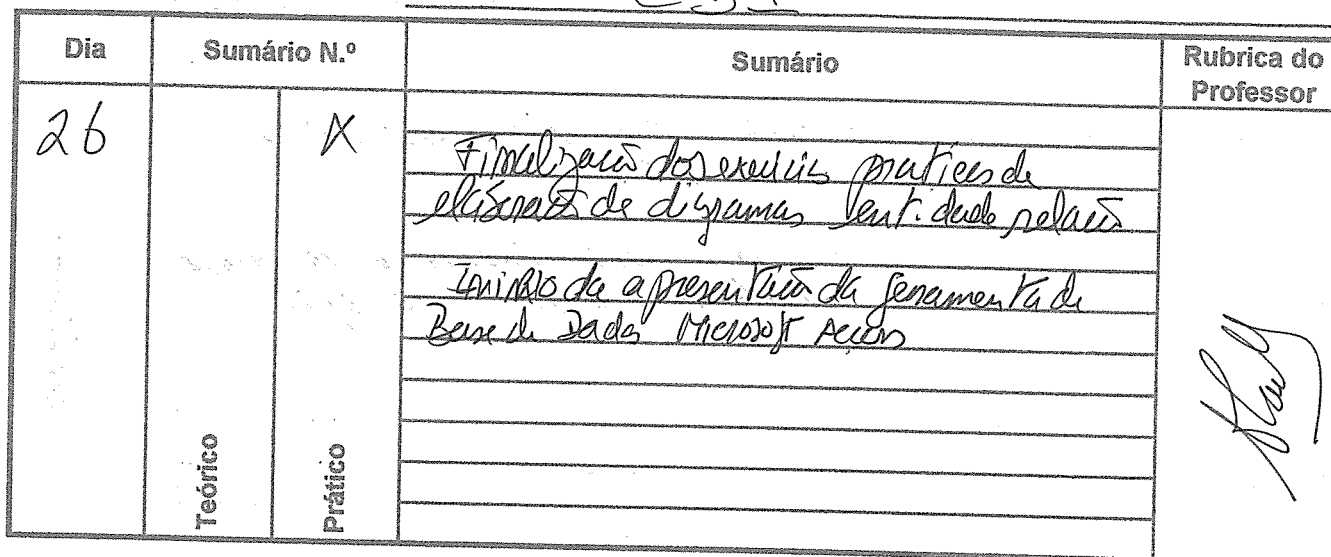 Dia Sumário N.º Sumário Rubrica do
Professor
26 X
Finalização dos exercícios práticos de
elaboração de diagramas entidade relação
Início da apresentação da ferramenta de
Base de Dados Microsoft Access
Teórico
Prático